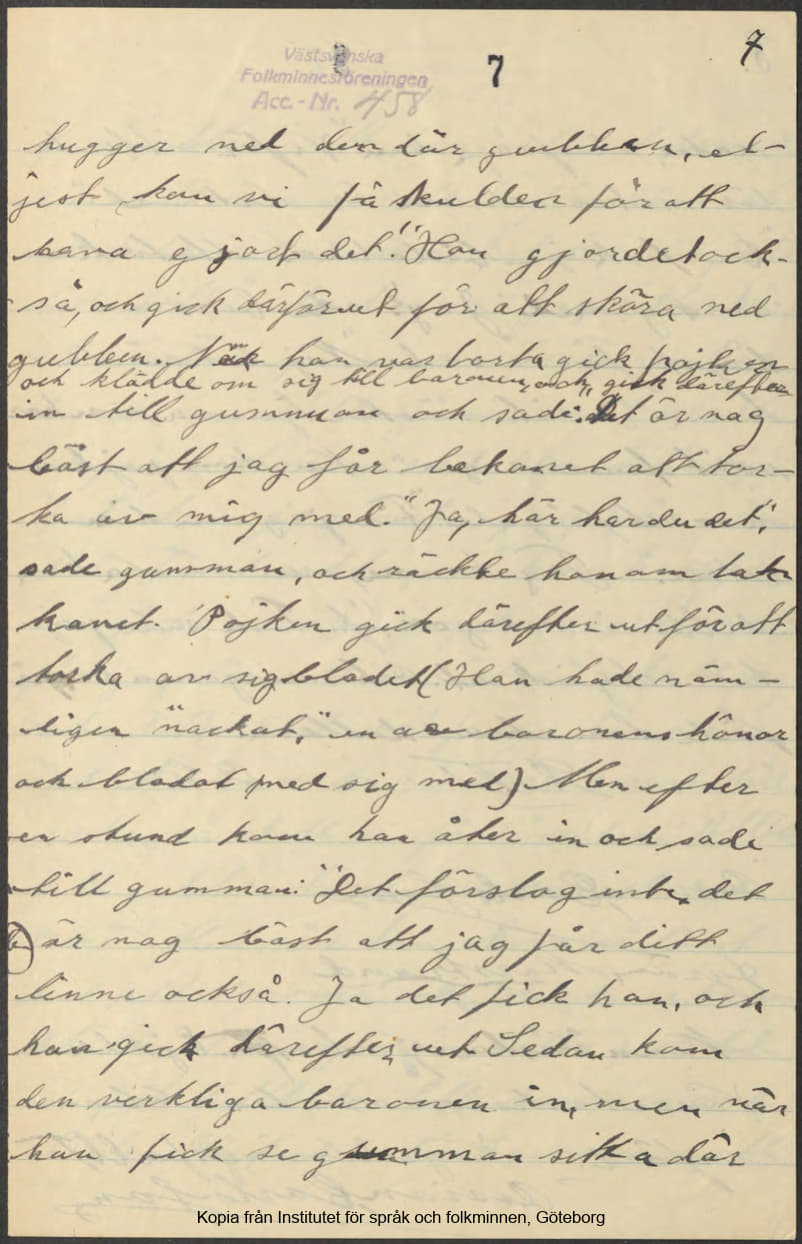 7
7
Västsvenska
Folkminnesföreningen
Acc.-Nr. 458
hugger ned den där gubben, el-
jest kan vi få skulden för att
hava gjort det." Han gjorde ock-
så, och gick därför ut för att skära ned
gubben. När han var borta gick pojken
och klädde om sig till baronen, och gick därefter
in till gumman och sade: "Det är nog
bäst att jag får lakanet att tor-
ka av mig med." "Ja, här har du det",
sade gumman, och räckte honom lak
kanet. Pojken gick därefter ut för att
torka av sig blodet (Han hade näm-
ligen "nackat," en av baronens hönor
och blodat ned sig med) Men efter
en stund kom han åter in och sade
till gumman: "Det förslog inte, det
är nog bäst att jag får ditt
linne också. Ja det fick han, och
han gick därefter ut. Sedan kom
den verkliga baronen in, men när
han fick se gumman sitta där
Kopia från Institutet för språk och folkminnen, Göteborg